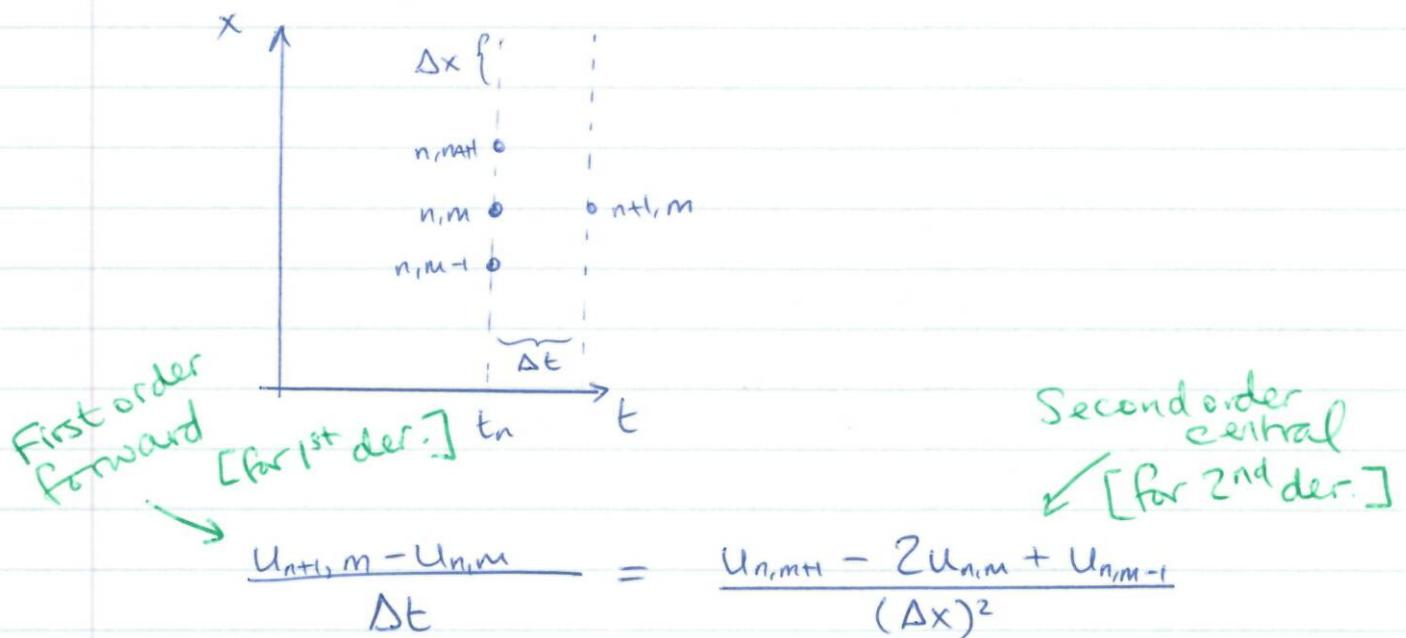 x
Δx {
n,m+1
n,m
n+1,m
n,m-1
Δt
t_n
t
First order
forward
[for 1st der.]
Second order
central
[for 2nd der.]
\frac{u_{n+1,m} - u_{n,m}}{Δt} = \frac{u_{n,m+1} - 2u_{n,m} + u_{n,m-1}}{(Δx)^2}